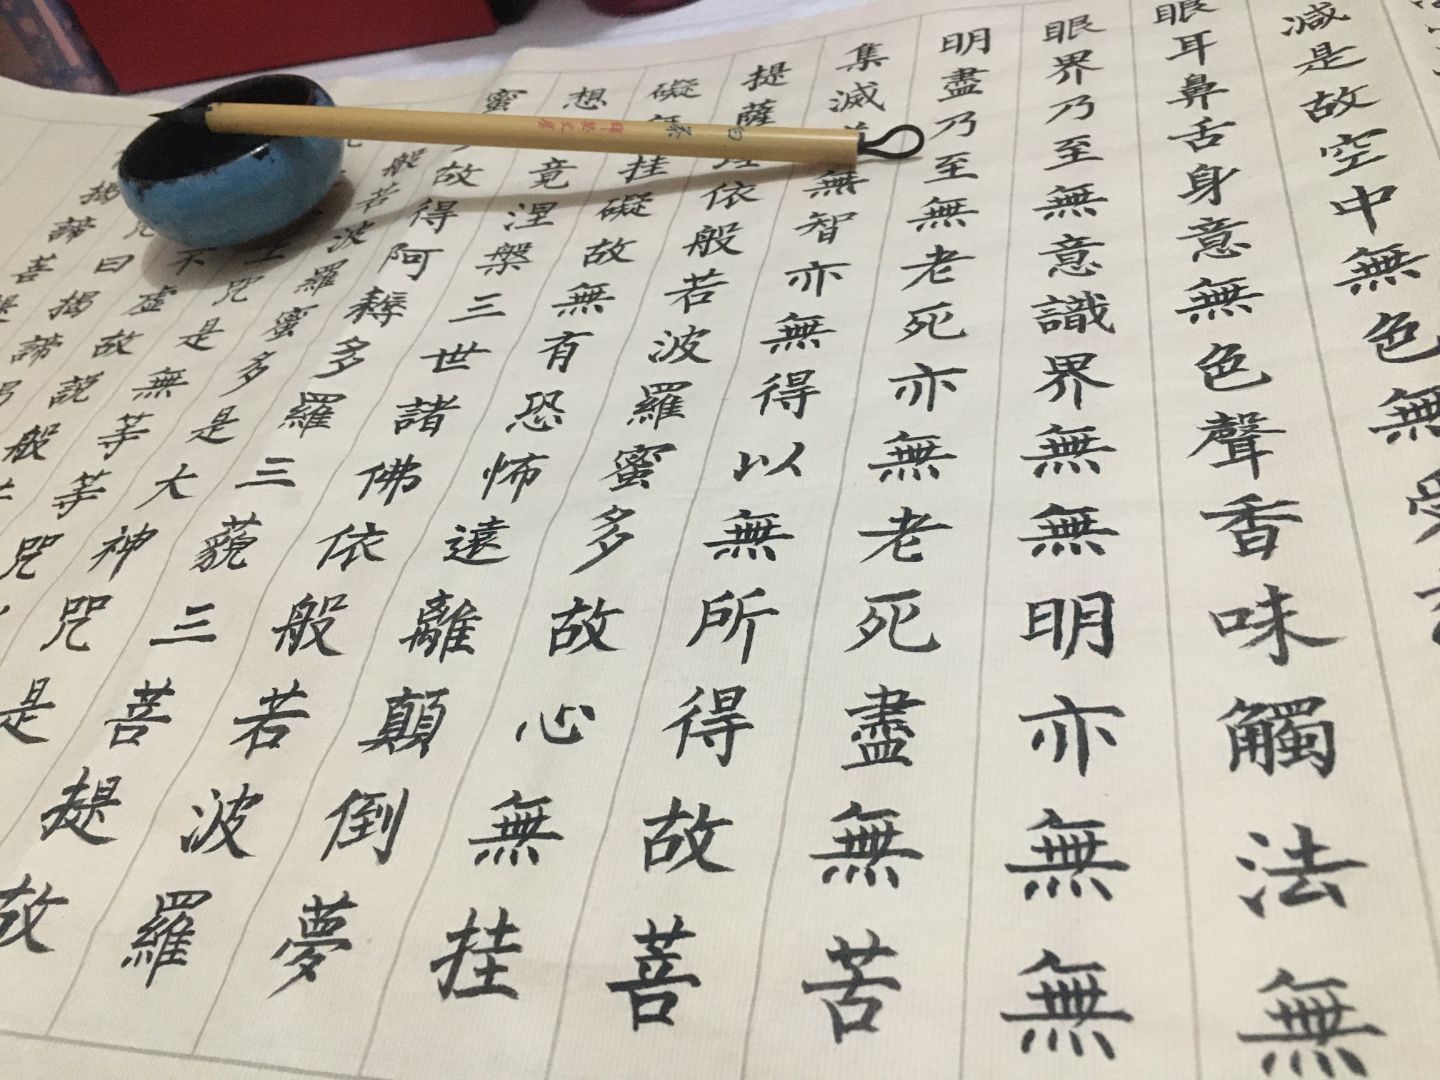 減是故空中無色無受
眼耳鼻舌身意無色聲香味觸法無
眼界乃至無意識界無無明亦無無
明盡乃至無老死亦無老死盡無苦
集滅無智亦無得以無所得故菩
提薩依般若波羅蜜多故心無挂
礙無挂礙故無有恐怖遠離顛倒夢
想竟涅槃三世諸佛依般若波羅
蜜故得阿耨多羅三藐三菩提故
般若波羅蜜多是大神咒是
咒是無等等咒
不虛故說般
曰揭諦
揭諦菩